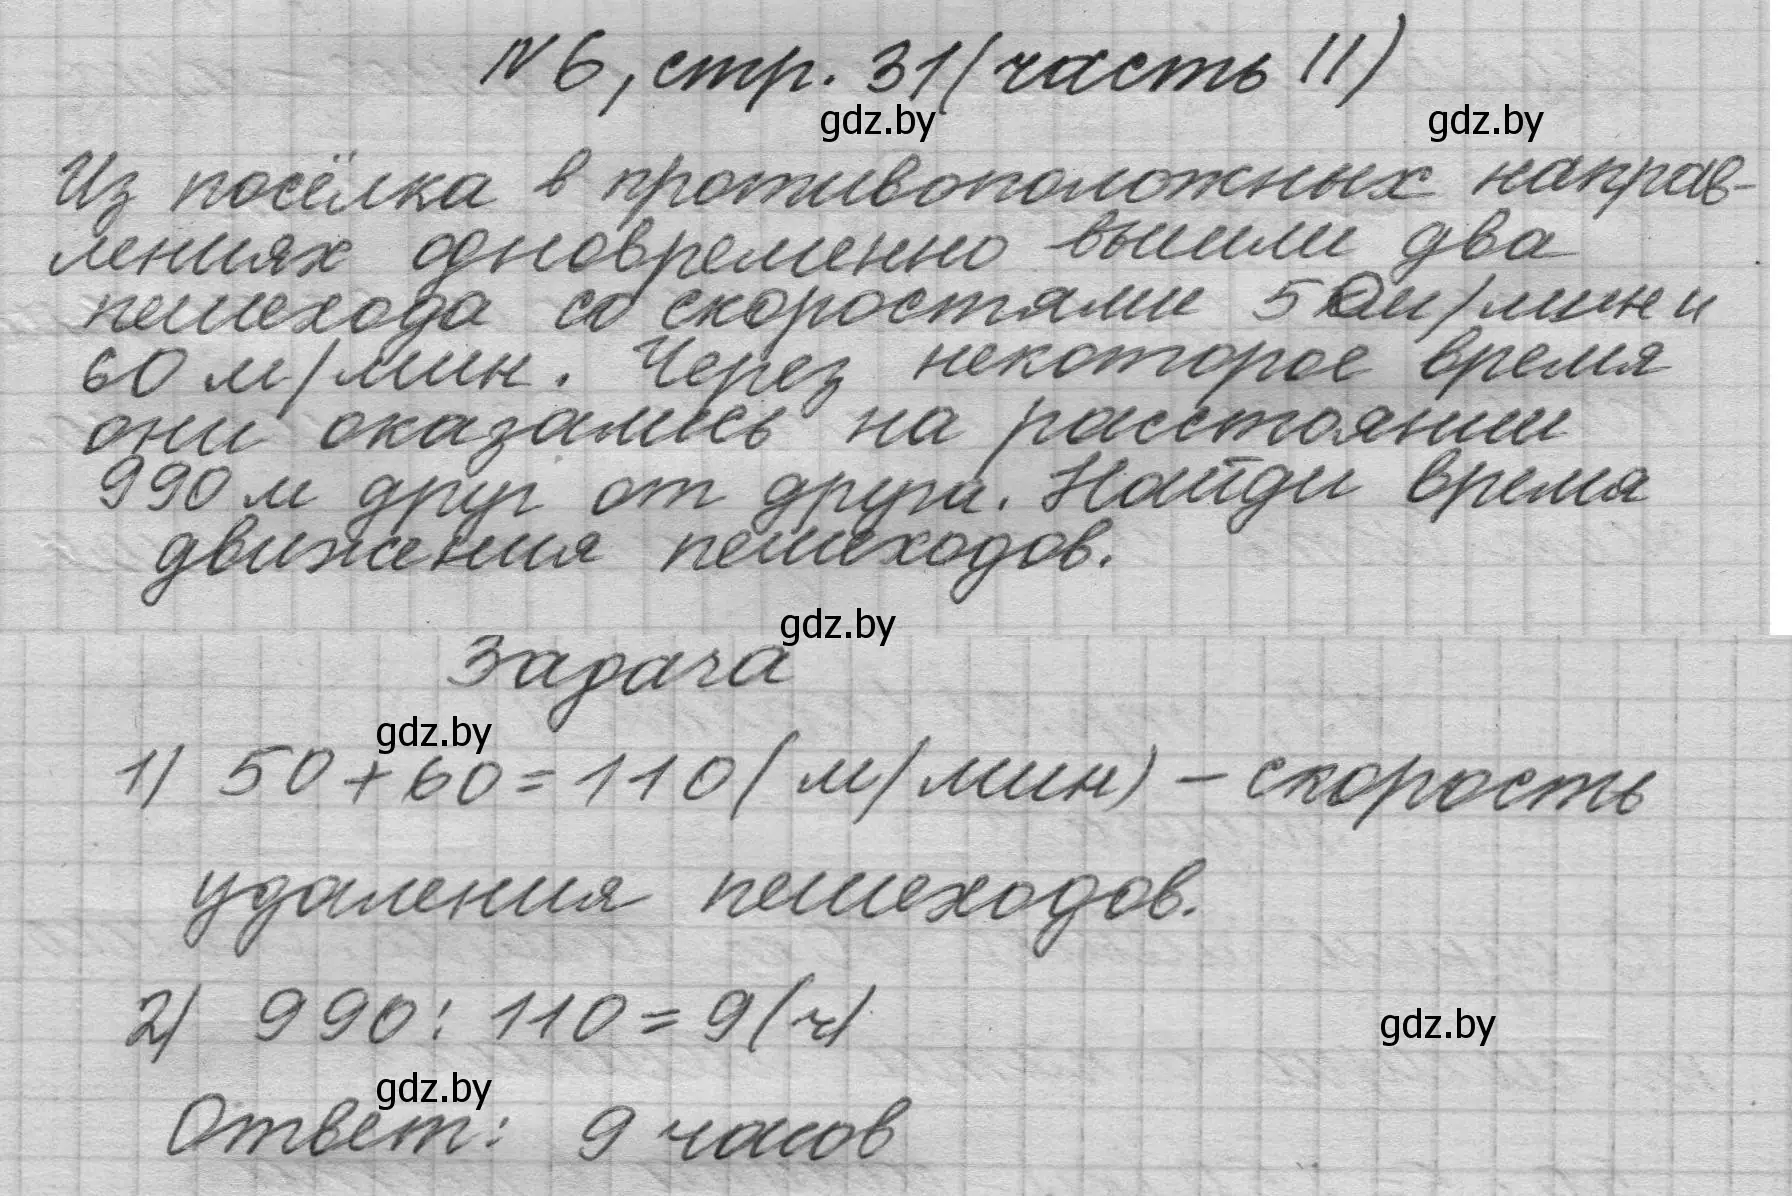 N 6, стр. 31 (часть II)
gdz.by gdz.by
Из посёлка в противоположных направ-
лениях одновременно вышли два
пешехода со скоростями 50 м/мин и
60 м/мин. Через некоторое время
они оказались на расстоянии
990 м друг от друга. Найди время
движения пешеходов.
gdz.by
Задача
gdz.by
1) 50 + 60 = 110 (м/мин) – скорость
удаления пешеходов.
2) 990 : 110 = 9 (ч)
gdz.by
gdz.by
Ответ: 9 часов